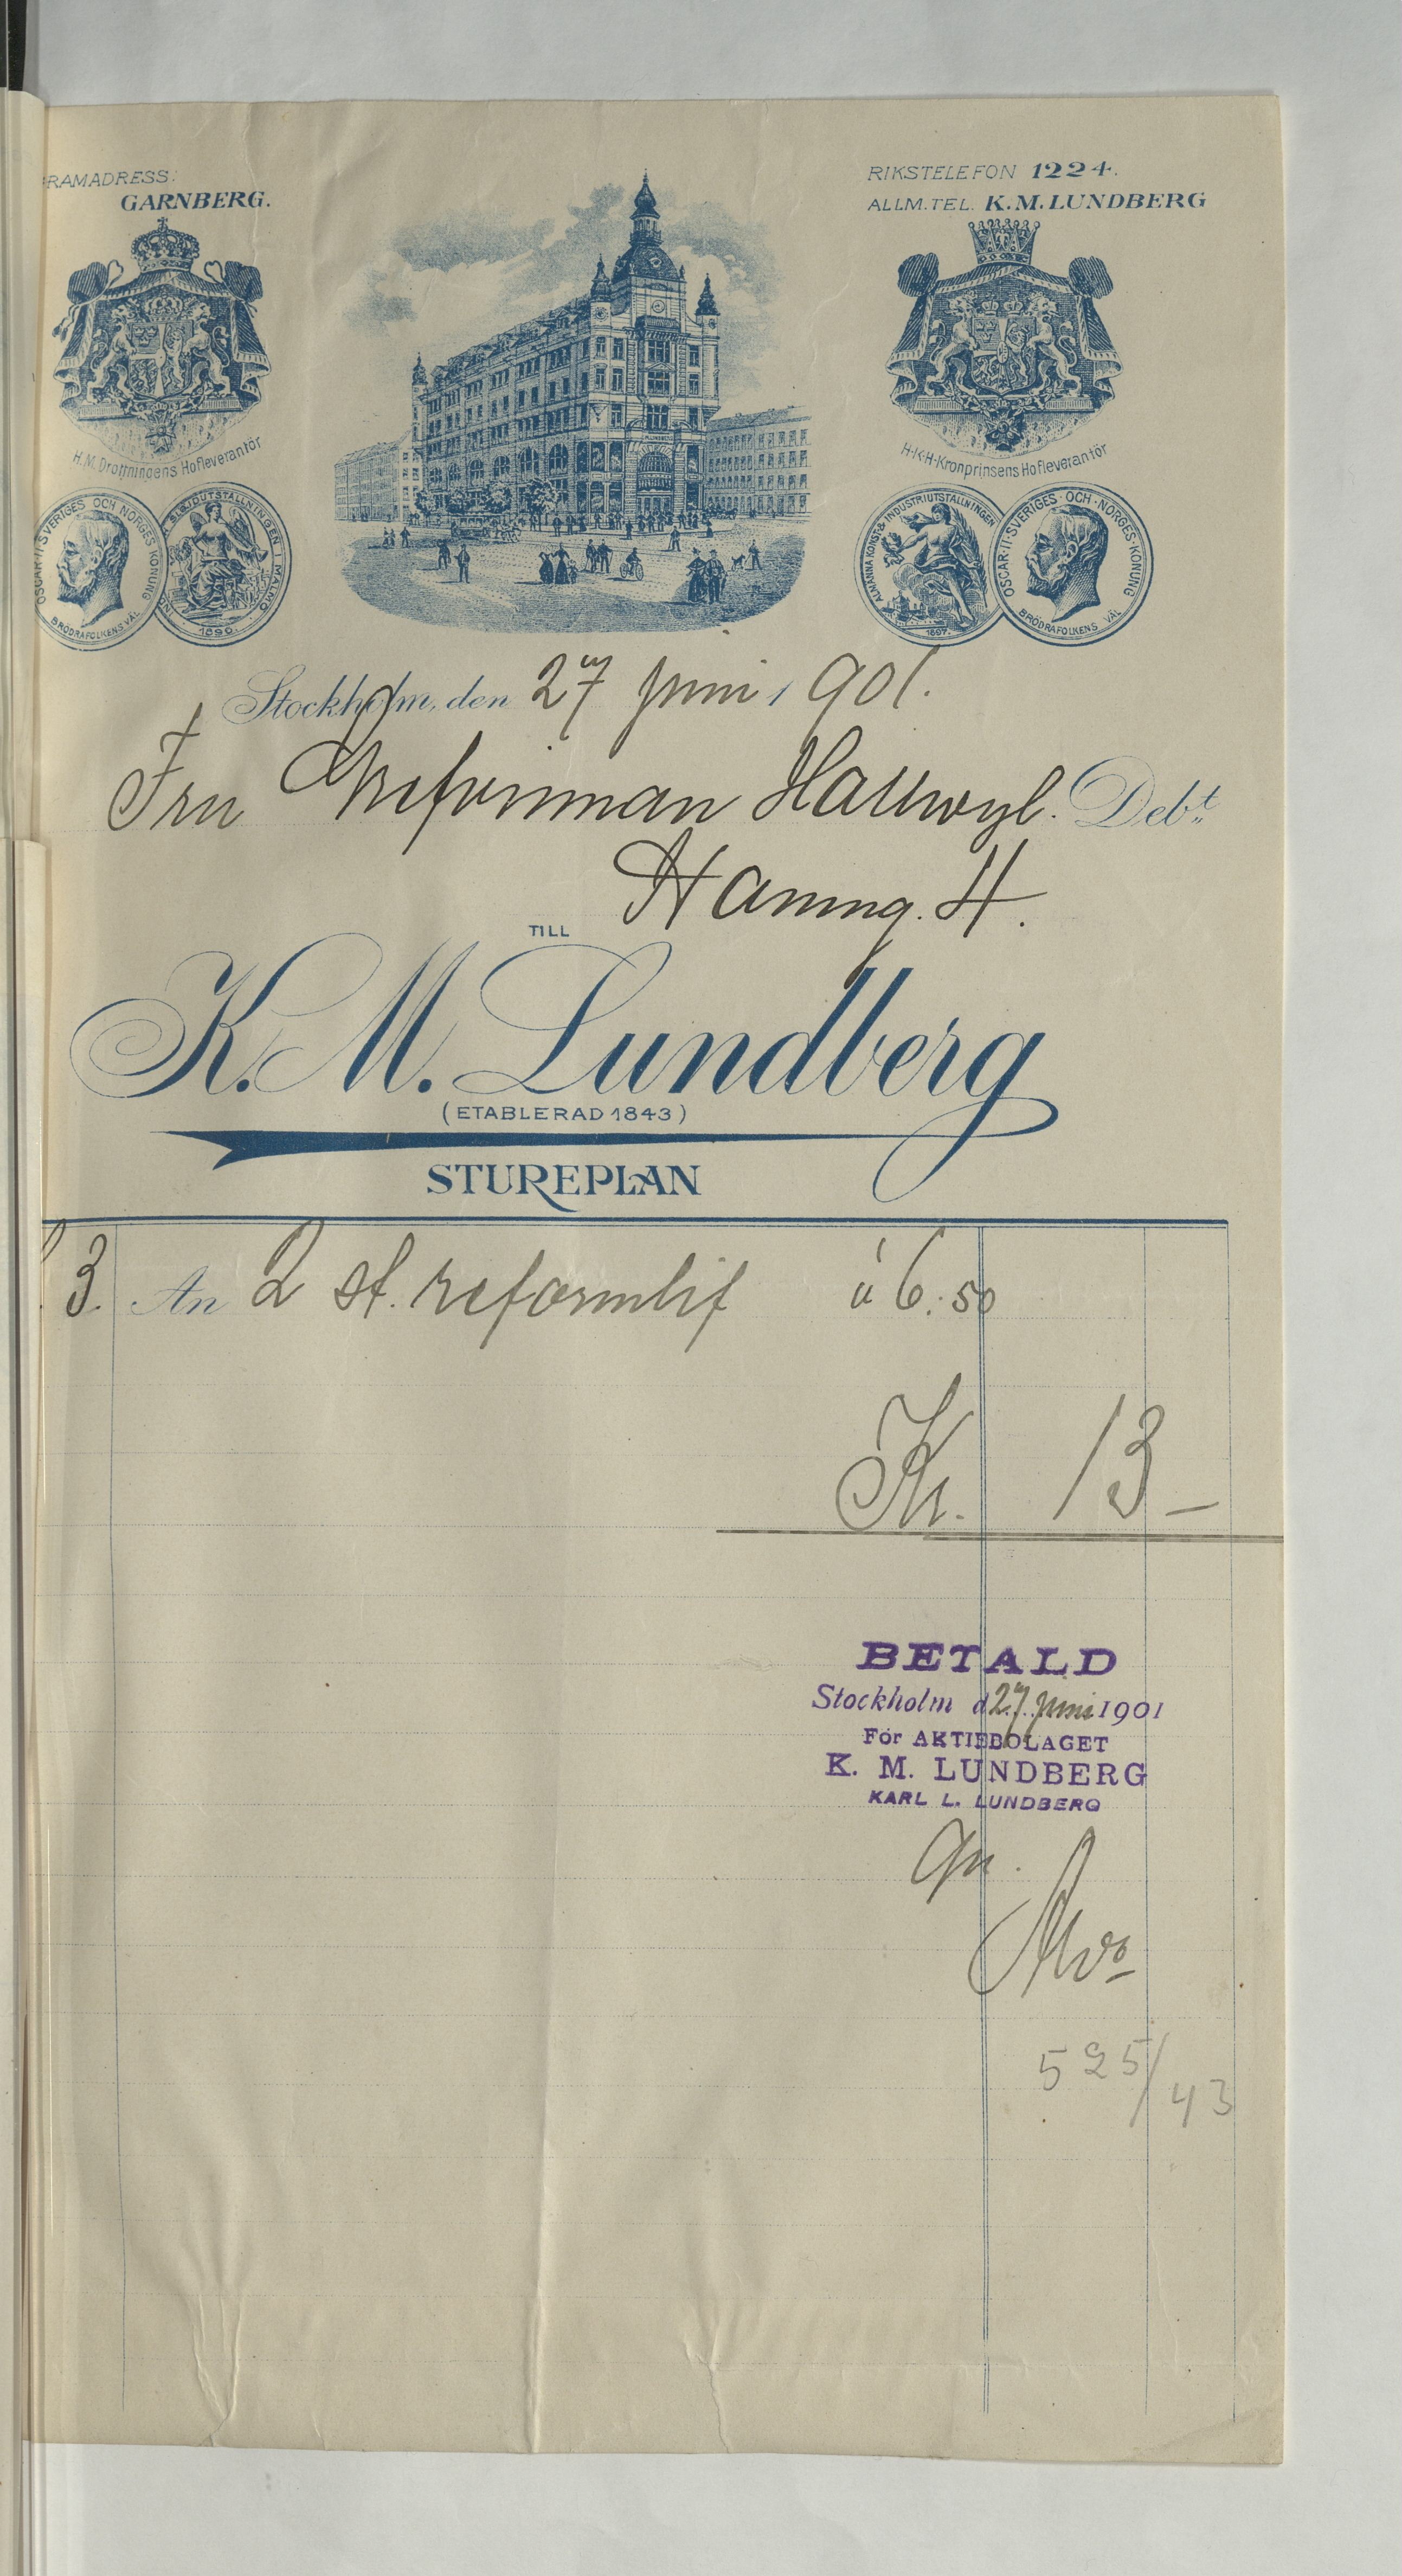 RAMADRESS:
GARNBERG.
RIKSTELEFON 1224.
ALLM. TEL. K. M. LUNDBERG
H.M. Drottningens Hofleverantör
H.K.H. Kronprinsens Hofleverantör
OSCAR·II·SVERIGES OCH NORGES KONUNG
BRÖDRAFOLKENS VÄL
SLÖJDUTSTÄLLNINGEN I MALMÖ
1896.
ALMÄNNA KONST & INDUSTRIUTSTÄLLNINGEN
1897.
OSCAR·II·SVERIGES·OCH·NORGES·KONUNG
BRÖDRAFOLKENS VÄL
Stockholm, den 27 juni 1901.
Fru Hallwyl. Deb:t
Hamng. 4.
TILL
K. M. Lundberg
(ETABLERAD 1843)
STUREPLAN
3. An 2 st. reformlif á 6:50
Kr. 13 –
BETALD
Stockholm d 27 juni 1901
För AKTIEBOLAGET
K. M. LUNDBERG
KARL L. LUNDBERG
525/43